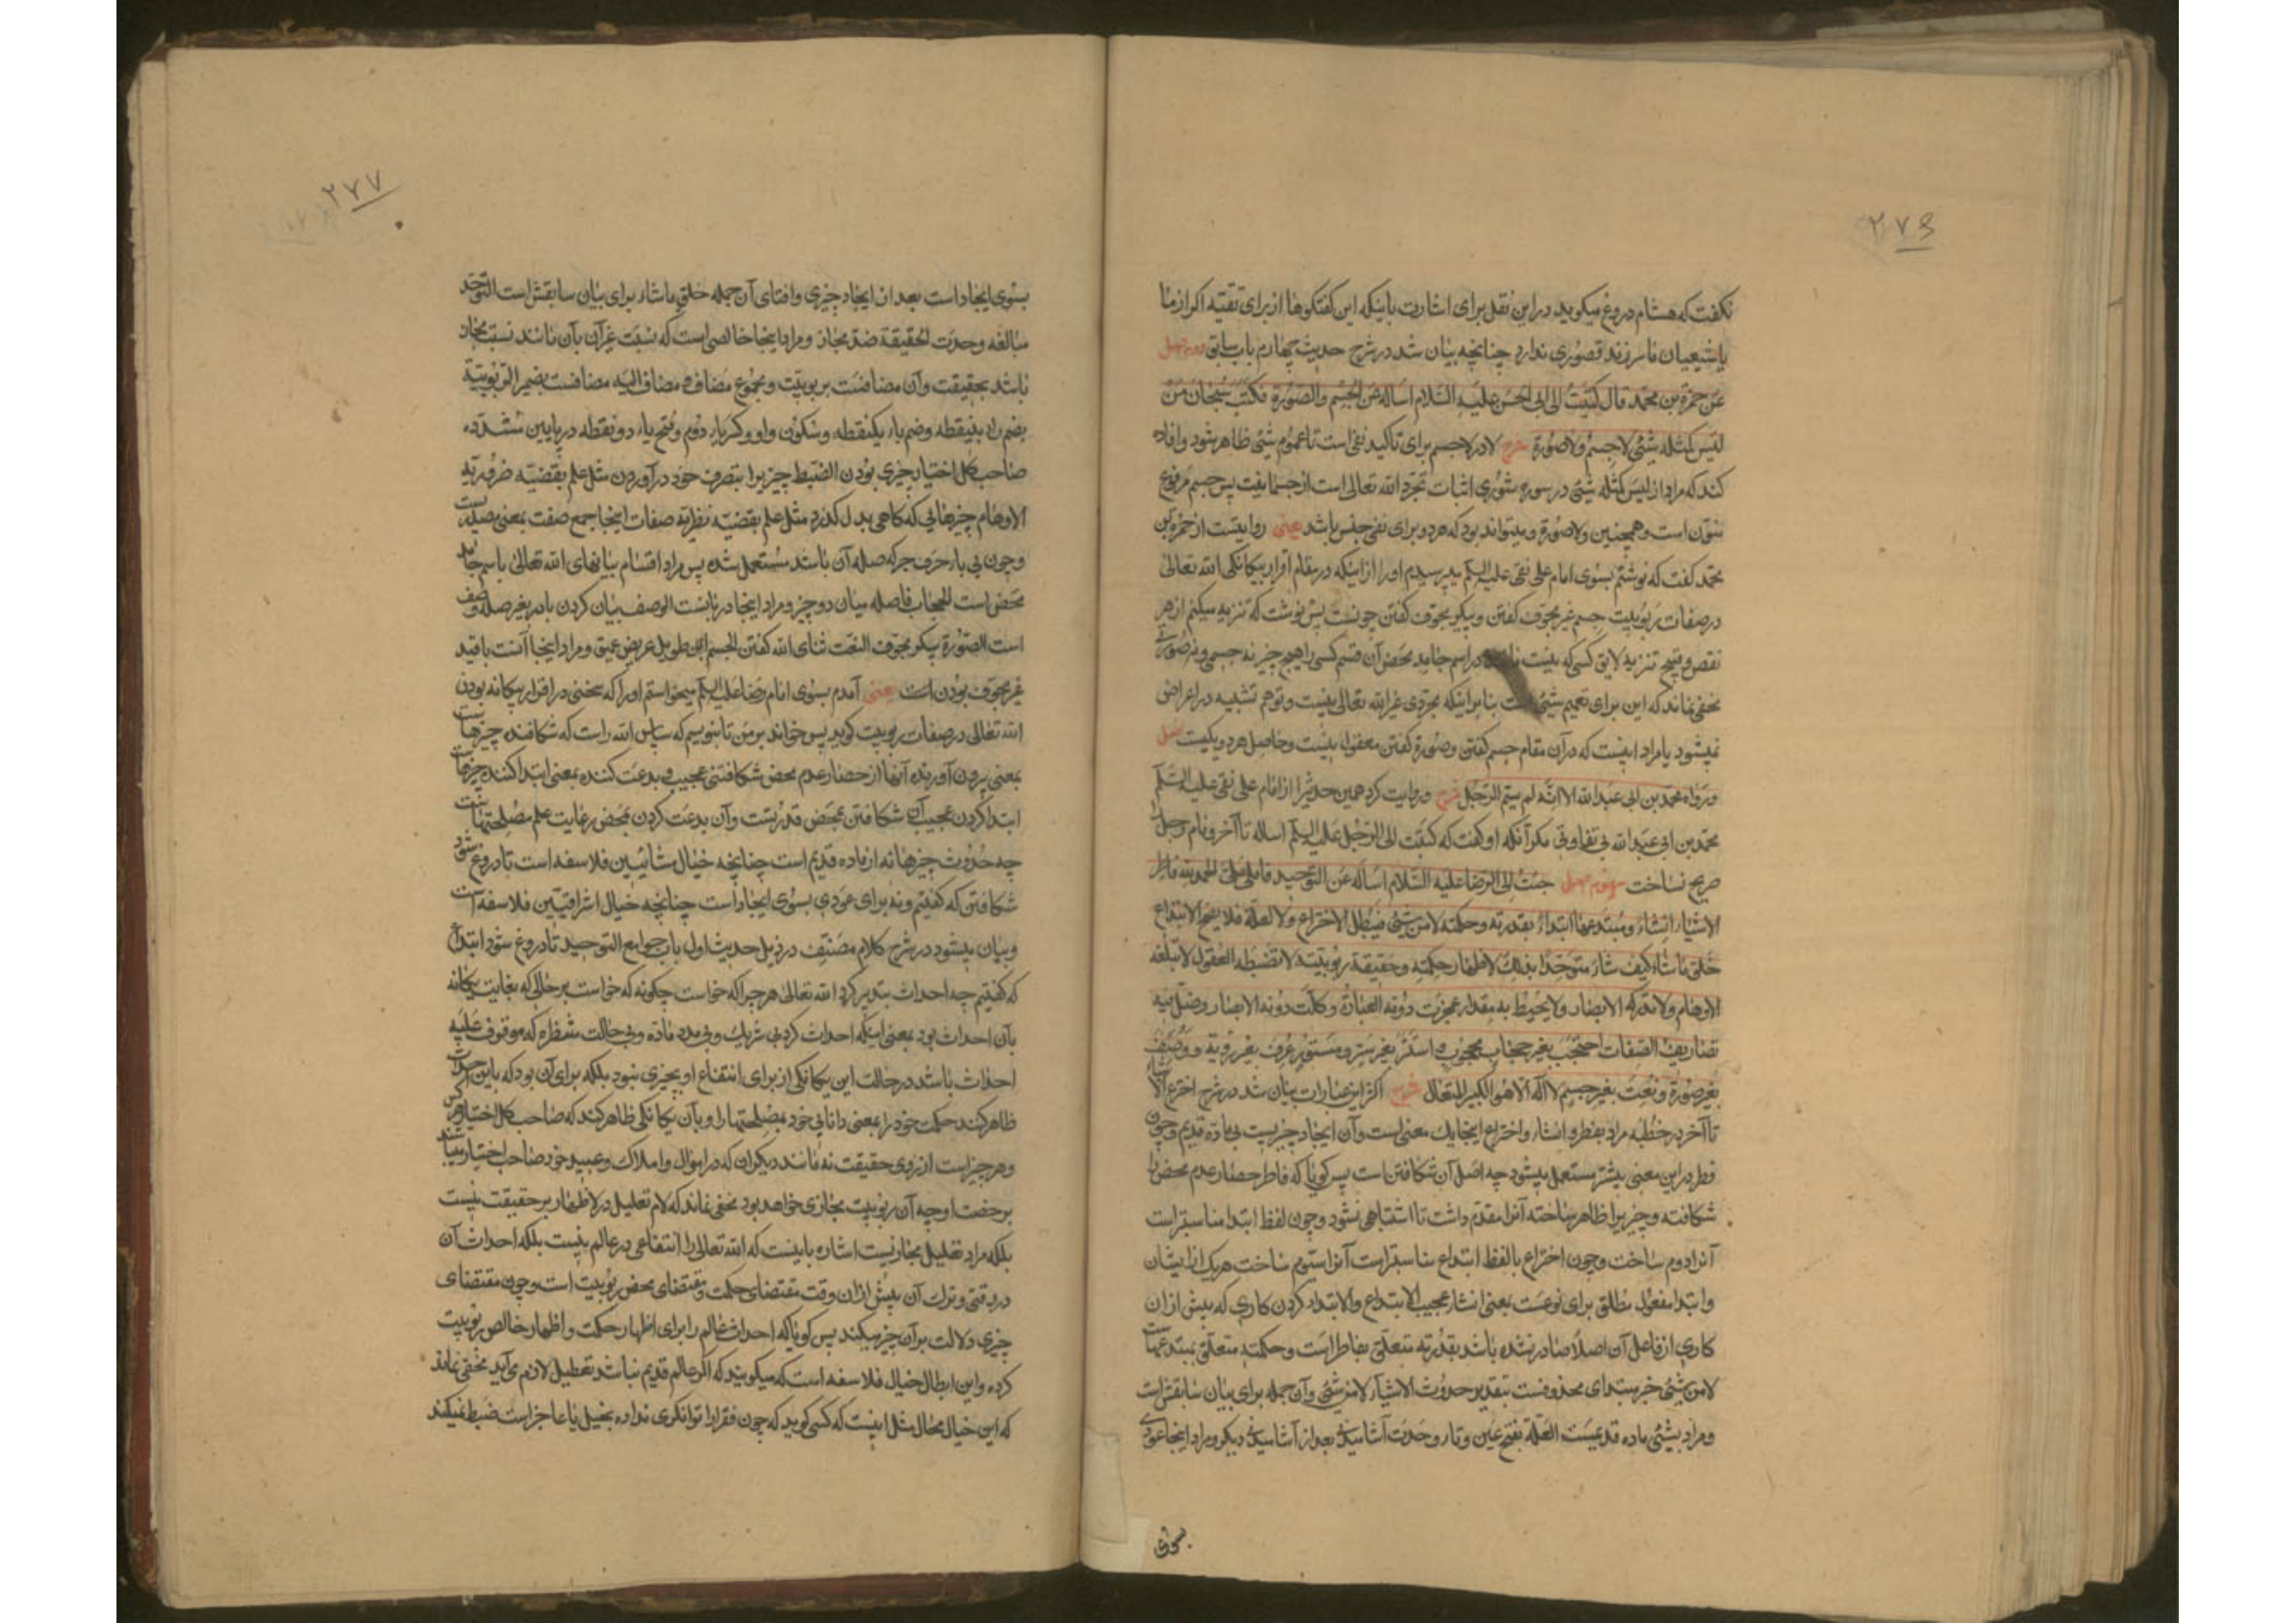 ۲۷۶
نکفت که هشام دروغ میکوید در این نقل برای اشارت باینکه این کفتکوها از برای تقیه اکر از ما
یا شیعیان ما سر زند قصوری ندارد چنانچه بیان شد در شرح حدیث چهارم باب سابق دوم اصل
عن حمزة بن محمد قال کتبت الی ابی الحسن علیه السلام اساله عن الجسم والصورة فکتب سبحان من
لیس کمثله شیئ لا جسم ولا صورة شرح لا در لا جسم برای تاکید نفی است تا عموم شیئ ظاهر شود و افاده
کند که مراد از لیس کمثله شیئ در سوره شوری اثبات تجرد الله تعالی است از جسمانیت پس جسم مرفوع
منون است و همچنین ولا صورة و میتواند بود که هر دو برای نفی جنس باشد یعنی روایتست از حمزه بن
محمد کفت که نوشتم بسوی امام علی نقی علیه السلم میپرسیدم او را از اینکه در مقام اقرار بیکانکی الله تعالی
در صفات ربوبیت جسم غیر مجوف کفتن و پیکر مجوف کفتن چونست پس نوشت که تنزیه میکنم از هر
نقص و قبیح تنزیه لایق کسی که نیست در اسم جامد محض آن قسم کسی را هیچ چیز نه جسمی و نه صورتی
مخفی نماند که این برای تعمیم شیئ است بنابر اینکه مجردی غیر الله تعالی نیست و توهم تشبیه در اعراض
نمیشود یا مراد اینست که در آن مقام جسم کفتن و صورة کفتن معقول نیست و حاصل هر دو یکیست اصل
ورواه محمد بن ابی عبد الله الا انه لم یسم الرجل شرح و روایت کرد همین حدیثرا از امام علی نقی علیه السلم
محمد بن ابی عبد الله بی تفاوتی مکر آنکه او کفت که کتبت الی الرجل علیه السلم اساله تا آخر و نام رجل را
صریح نساخت سوم اصل جئت الی الرضا علیه السلام اساله عن التوحید فاملی علی الحمد لله فاطر
الاشیاء انشاء ومبتدعها ابتداء بقدرته وحکمته لا من شیئ فیبطل الاختراع ولا لعلة فلا یصح الابتداع
خلق ما شاء کیف شاء متوحدا بذلک لاظهار حکمته وحقیقة ربوبیته لا تضبطه العقول لا تبلغه
الاوهام ولا تدرکه الابصار ولا یحیط به مقدار عجزت دونه العبارة وکلت دونه الابصار وضل فیه
تصاریف الصفات احتجب بغیر حجاب محجوب استتر بغیر ستر مستور عرف بغیر رؤیة ووصف
بغیر صورة ونعت بغیر جسم لا اله الا هو الکبیر المتعال شرح اکثر این عبارات بیان شد در شرح
تا آخر در خطبه مراد بفطر و انشاء و اختراع اینجا یک معنی است و آن ایجاد چیزیست بی ماده قدیم و چون
فطر در این معنی بیشتر مستعمل میشود چه اصل آن شکافتن است پس کویا که فاطر حصار عدم محض را
شکافته و چیزیرا ظاهر ساخته آنرا مقدم داشت تا اشتباهی نشود و چون لفظ ابتدا مناسبتر است
آنرا دوم ساخت و چون اختراع بالفظ ابتداع مناسبتر است آنرا سوم ساخت هر یک از ایشان
و ابتدا مفعول مطلق برای نوعست بمعنی انشاء عجیب الابتداع والابتداء کردن کاری که پیش از ان
کاری از فاعل آن اصلا صادر نشده باشد بقدرته متعلق بفاطر است وحکمته متعلق بمبتدعهاست
لا من شیئ خبر مبتدای محذوفست بتقدیر حدوث الاشیاء لا من شیئ و آن جمله برای بیان سابقش است
و مراد بشیئ ماده قدیمست العلة بفتح عین و تاء وحدت آشامیدنی بعد از آشامیدنی دیکر و مراد اینجا عودی
بسوی
۲۷۷
بسوی ایجاد است بعد از ایجاد چیزی و افنای آن جمله خلق ما شاء برای بیان سابقش است التوحد
مبالغه وحدت الحقیقة ضد مجاز و مراد اینجا خالصی است که نسبت غیر آن بآن مانند نسبت مجاز
باشد بحقیقت و آن مضافست بربوبیت و مجموع مضاف و مضاف الیه مضافست بضمیر الربوبیة
بضم راء بینقطه و ضم باء یکنقطه و سکون واو و کسر باء دوم و فتح یاء دو نقطه در پایین مشدده
صاحب کل اختیار چیزی بودن الضبط چیزیرا بتصرف خود در آوردن مثل علم بقضیه ضروریه
الاوهام چیزهایی که کاهی بدل کذرد مثل علم بقضیه نظریه صفات اینجا جمع صفت بمعنی صله است
و چون بی باء حرف جر که صله آن باشد مستعمل شده پس مراد اقسام بیانهای الله تعالی باسم جامد
محض است الحجاب فاصله میان دو چیز و مراد اینجا در بابست الوصف بیان کردن با و بغیر صله وصف
است الصورة پیکر مجوف النعت ثنای الله کفتن الجسم طویل عریض عمیق و مراد اینجا آنست باقید
غیر مجوف بودن است یعنی آمدم بسوی امام رضا علیه السلم میخواستم او را که سخنی در اقرار بیکانه بودن
الله تعالی در صفات ربوبیت کوید پس خواند بر من تا بنویسم که سپاس الله راست که شکافنده چیزهاست
بمعنی بیرون آورنده آنها از حصار عدم محض شکافتنی عجیب و بدعت کننده بمعنی ابتدا کننده چیزهاست
ابتدا کردن عجیب آن شکافتن بمحض قدرتست و آن بدعت کردن بمحض رعایت علم مصلحتهاست
چه حدوث چیزها نه از ماده قدیم است چنانچه خیال مشائیین فلاسفه است تا دروغ شود
شکافتن که کفتیم و نه برای عودی بسوی ایجاد است چنانچه خیال اشراقیین فلاسفه است
و بیان میشود در شرح کلام مصنف در ذیل حدیث اول باب جوامع التوحید تا دروغ شود ابتداع
که کفتیم چه احداث بتدبیر کرد الله تعالی هر چرا که خواست چکونه که خواست بر حالی که بغایت یکانه
بآن احداث بود بمعنی اینکه احداث کرد بی شریک و بی مدد ماده و بی حالت منتظره که موقوف علیه
احداث باشد در حالت این یکانکی از برای انتفاع او بچیزی نبود بلکه برای آن بود که باین احداث
ظاهر کند حکمت خود را بمعنی دانایی خود بمصلحتها را و بآن یکانکی ظاهر کند که صاحب کل اختیار هر کس
و هر چیز است از روی حقیقت نه مانند دیکران که در اموال و املاک و عبید خود صاحب اختیار میباشند
برخصت او چه آن ربوبیت مجازی خواهد بود مخفی نماند که لام تعلیل در لاظهار بر حقیقت نیست
بلکه مراد تعلیل مجازیست اشاره باینست که الله تعالی را انتفاعی در عالم نیست بلکه احداث آن
در وقتی و ترک آن پیش از ان وقت مقتضای حکمت و مقتضای محض ربوبیت است و چون مقتضای
چیزی دلالت بر آن چیز میکند پس کویا که احداث عالم را برای اظهار حکمت و اظهار خالص ربوبیت
کرده و این ابطال خیال فلاسفه است که میکویند که اکر عالم قدیم نباشد تعطیل لازم می‌آید مخفی نماند
که این خیال محال مثل اینست که کسی کوید که چون فقرا را توانکری نداده بخیل یا عاجز است ضبط نمیکند